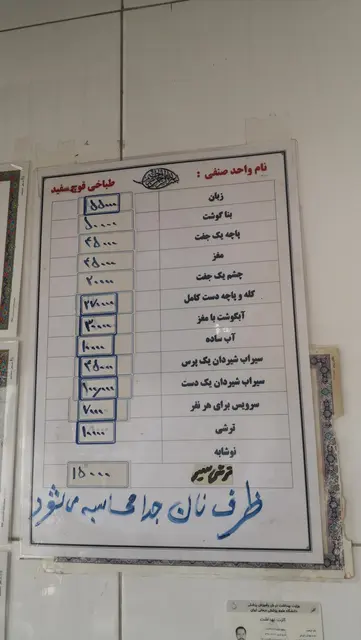 نام واحد صنفی : طباخی قوچ سفید
زبان ۵۵۰۰۰
بناگوشت ۵۰۰۰۰
پاچه یک جفت ۴۵۰۰۰
مغز ۴۵۰۰۰
چشم یک جفت ۲۰۰۰۰
کله و پاچه دست کامل ۲۷۰۰۰۰
آبگوشت با مغز ۳۰۰۰۰
آب ساده ۱۰۰۰۰
سیراب شیردان یک پرس ۳۵۰۰۰
سیراب شیردان یک دست ۱۰۰۰۰۰
سرویس برای هر نفر ۷۰۰۰
ترشی ۱۰۰۰۰
نوشابه
ترشی سیر ۱۵۰۰۰
ظرف نان جدا محاسبه میشود